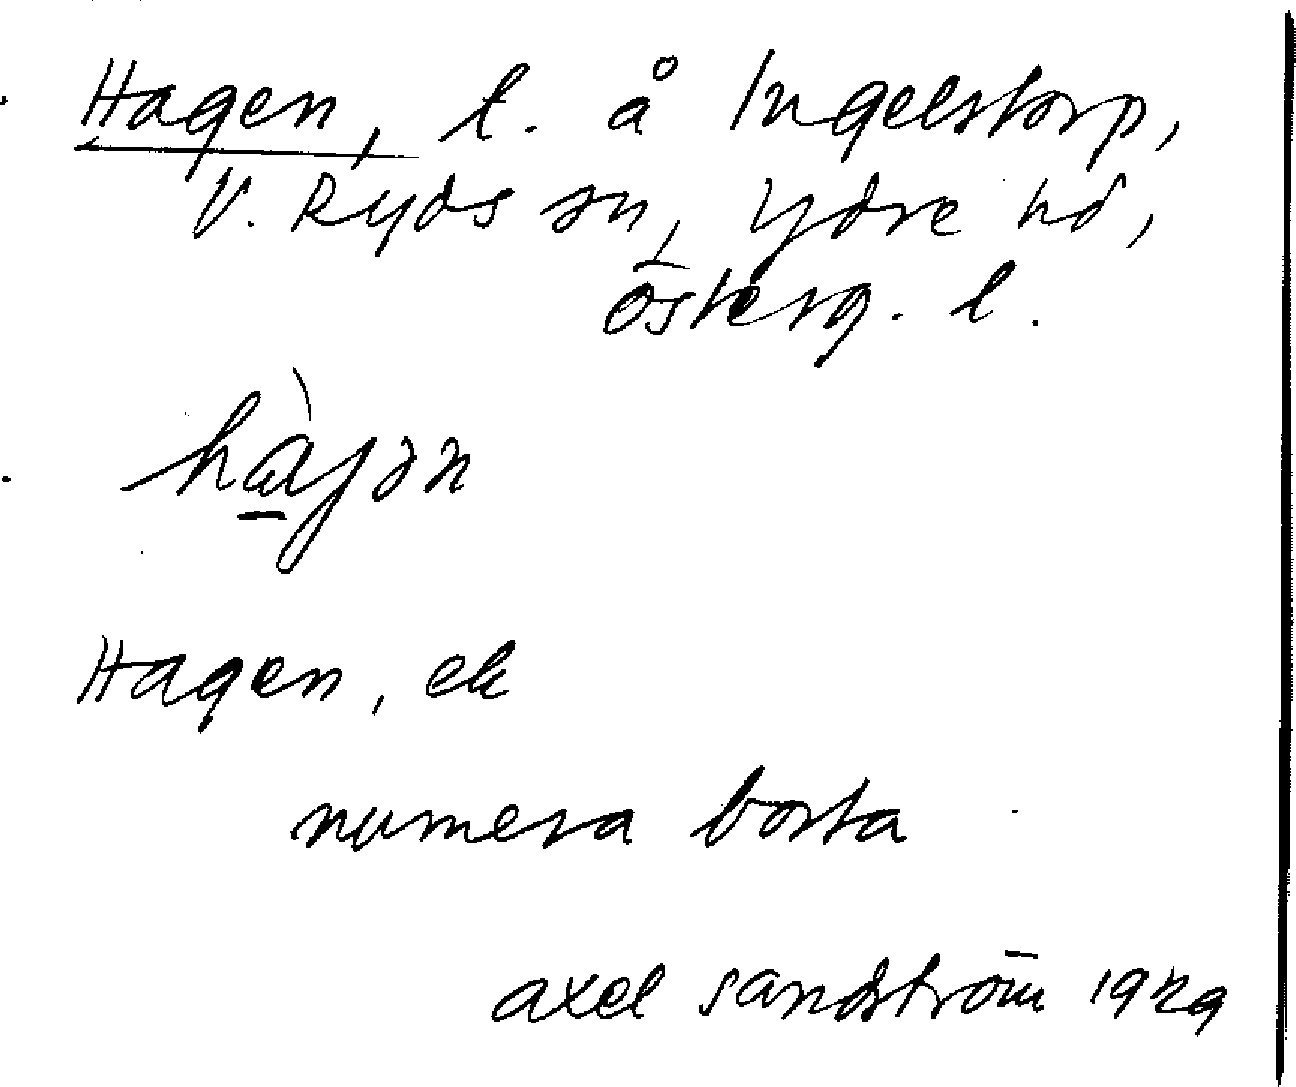 Hagen, l. å Ingelstorp,
V. Ryds sn, Ydre hd,
Österg. l.
hàgən
Hagen, ek
numera borta
Axel Sandström 1929